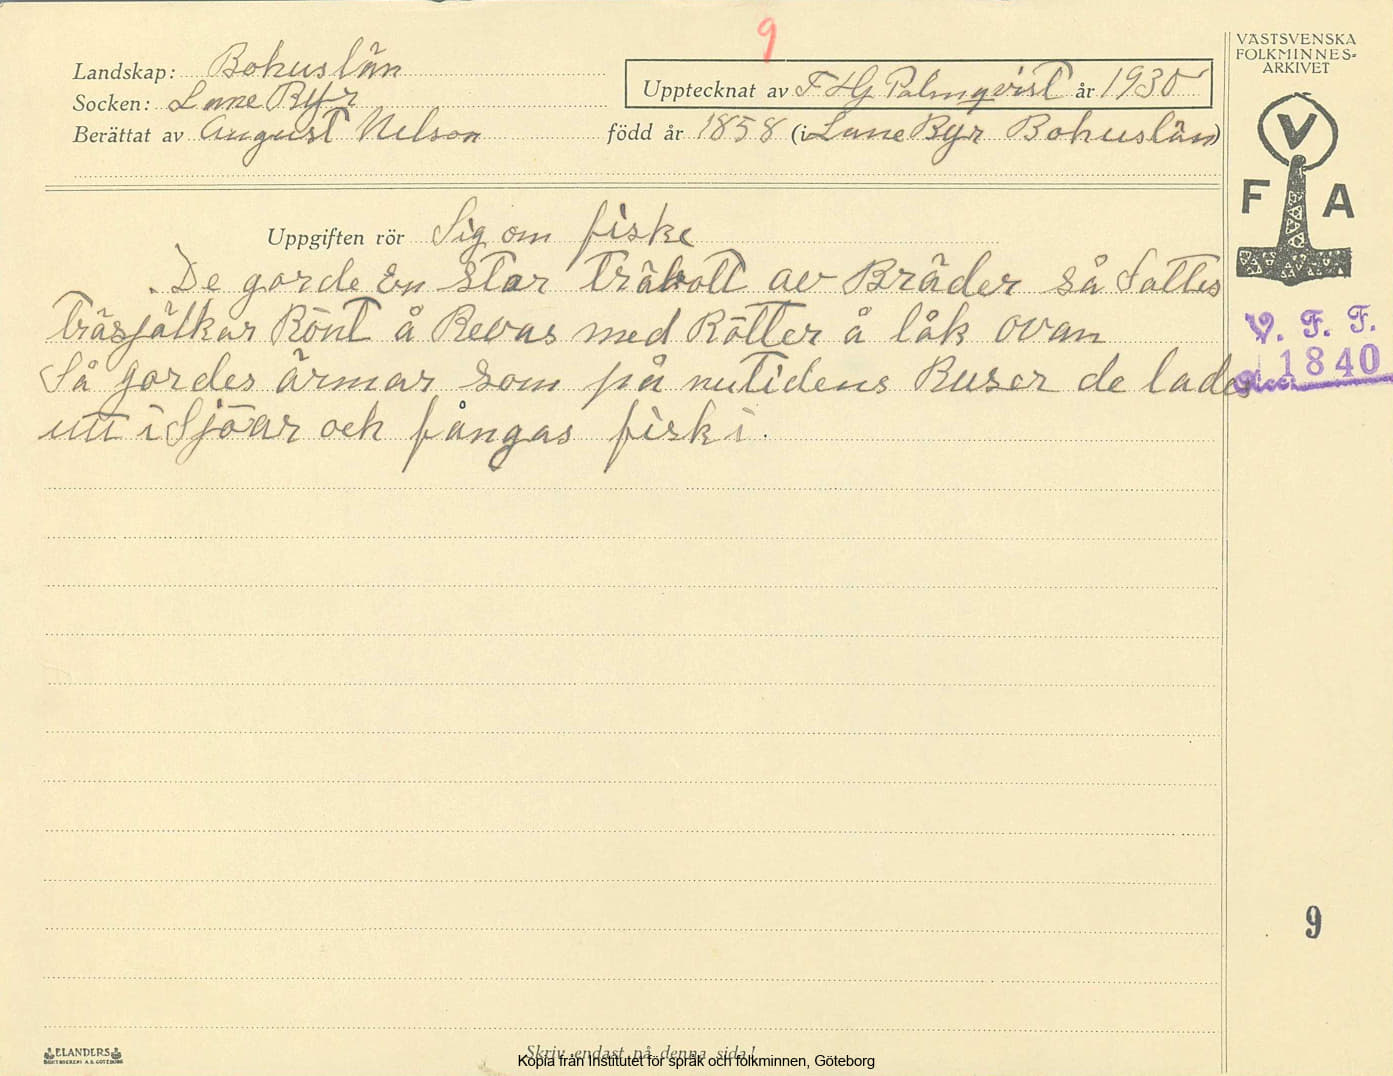 9
VÄSTSVENSKA
FOLKMINNES-
ARKIVET
Landskap: Bohuslän
Socken: Lane Ryr
Upptecknat av F HG Palmqvist år 1930
Berättat av August Nelson född år 1858 (i Lane Ryr Bohuslän)
V
F A
Uppgiften rör Sig om fiske
De gorde En stor träbott av Bräder så Sattes
träsjälkar Rönt å Revas med Rötter å låk ovan
Så gordes ärmar som på nutidens Ruser de lades
utt i Sjöar och fångas fisk i.
V. F. F.
1840
9
ELANDERS
BOKTRYCKERI A.B. GÖTEBORG
Skriv endast på denna sida!
Kopia från Institutet för språk och folkminnen, Göteborg